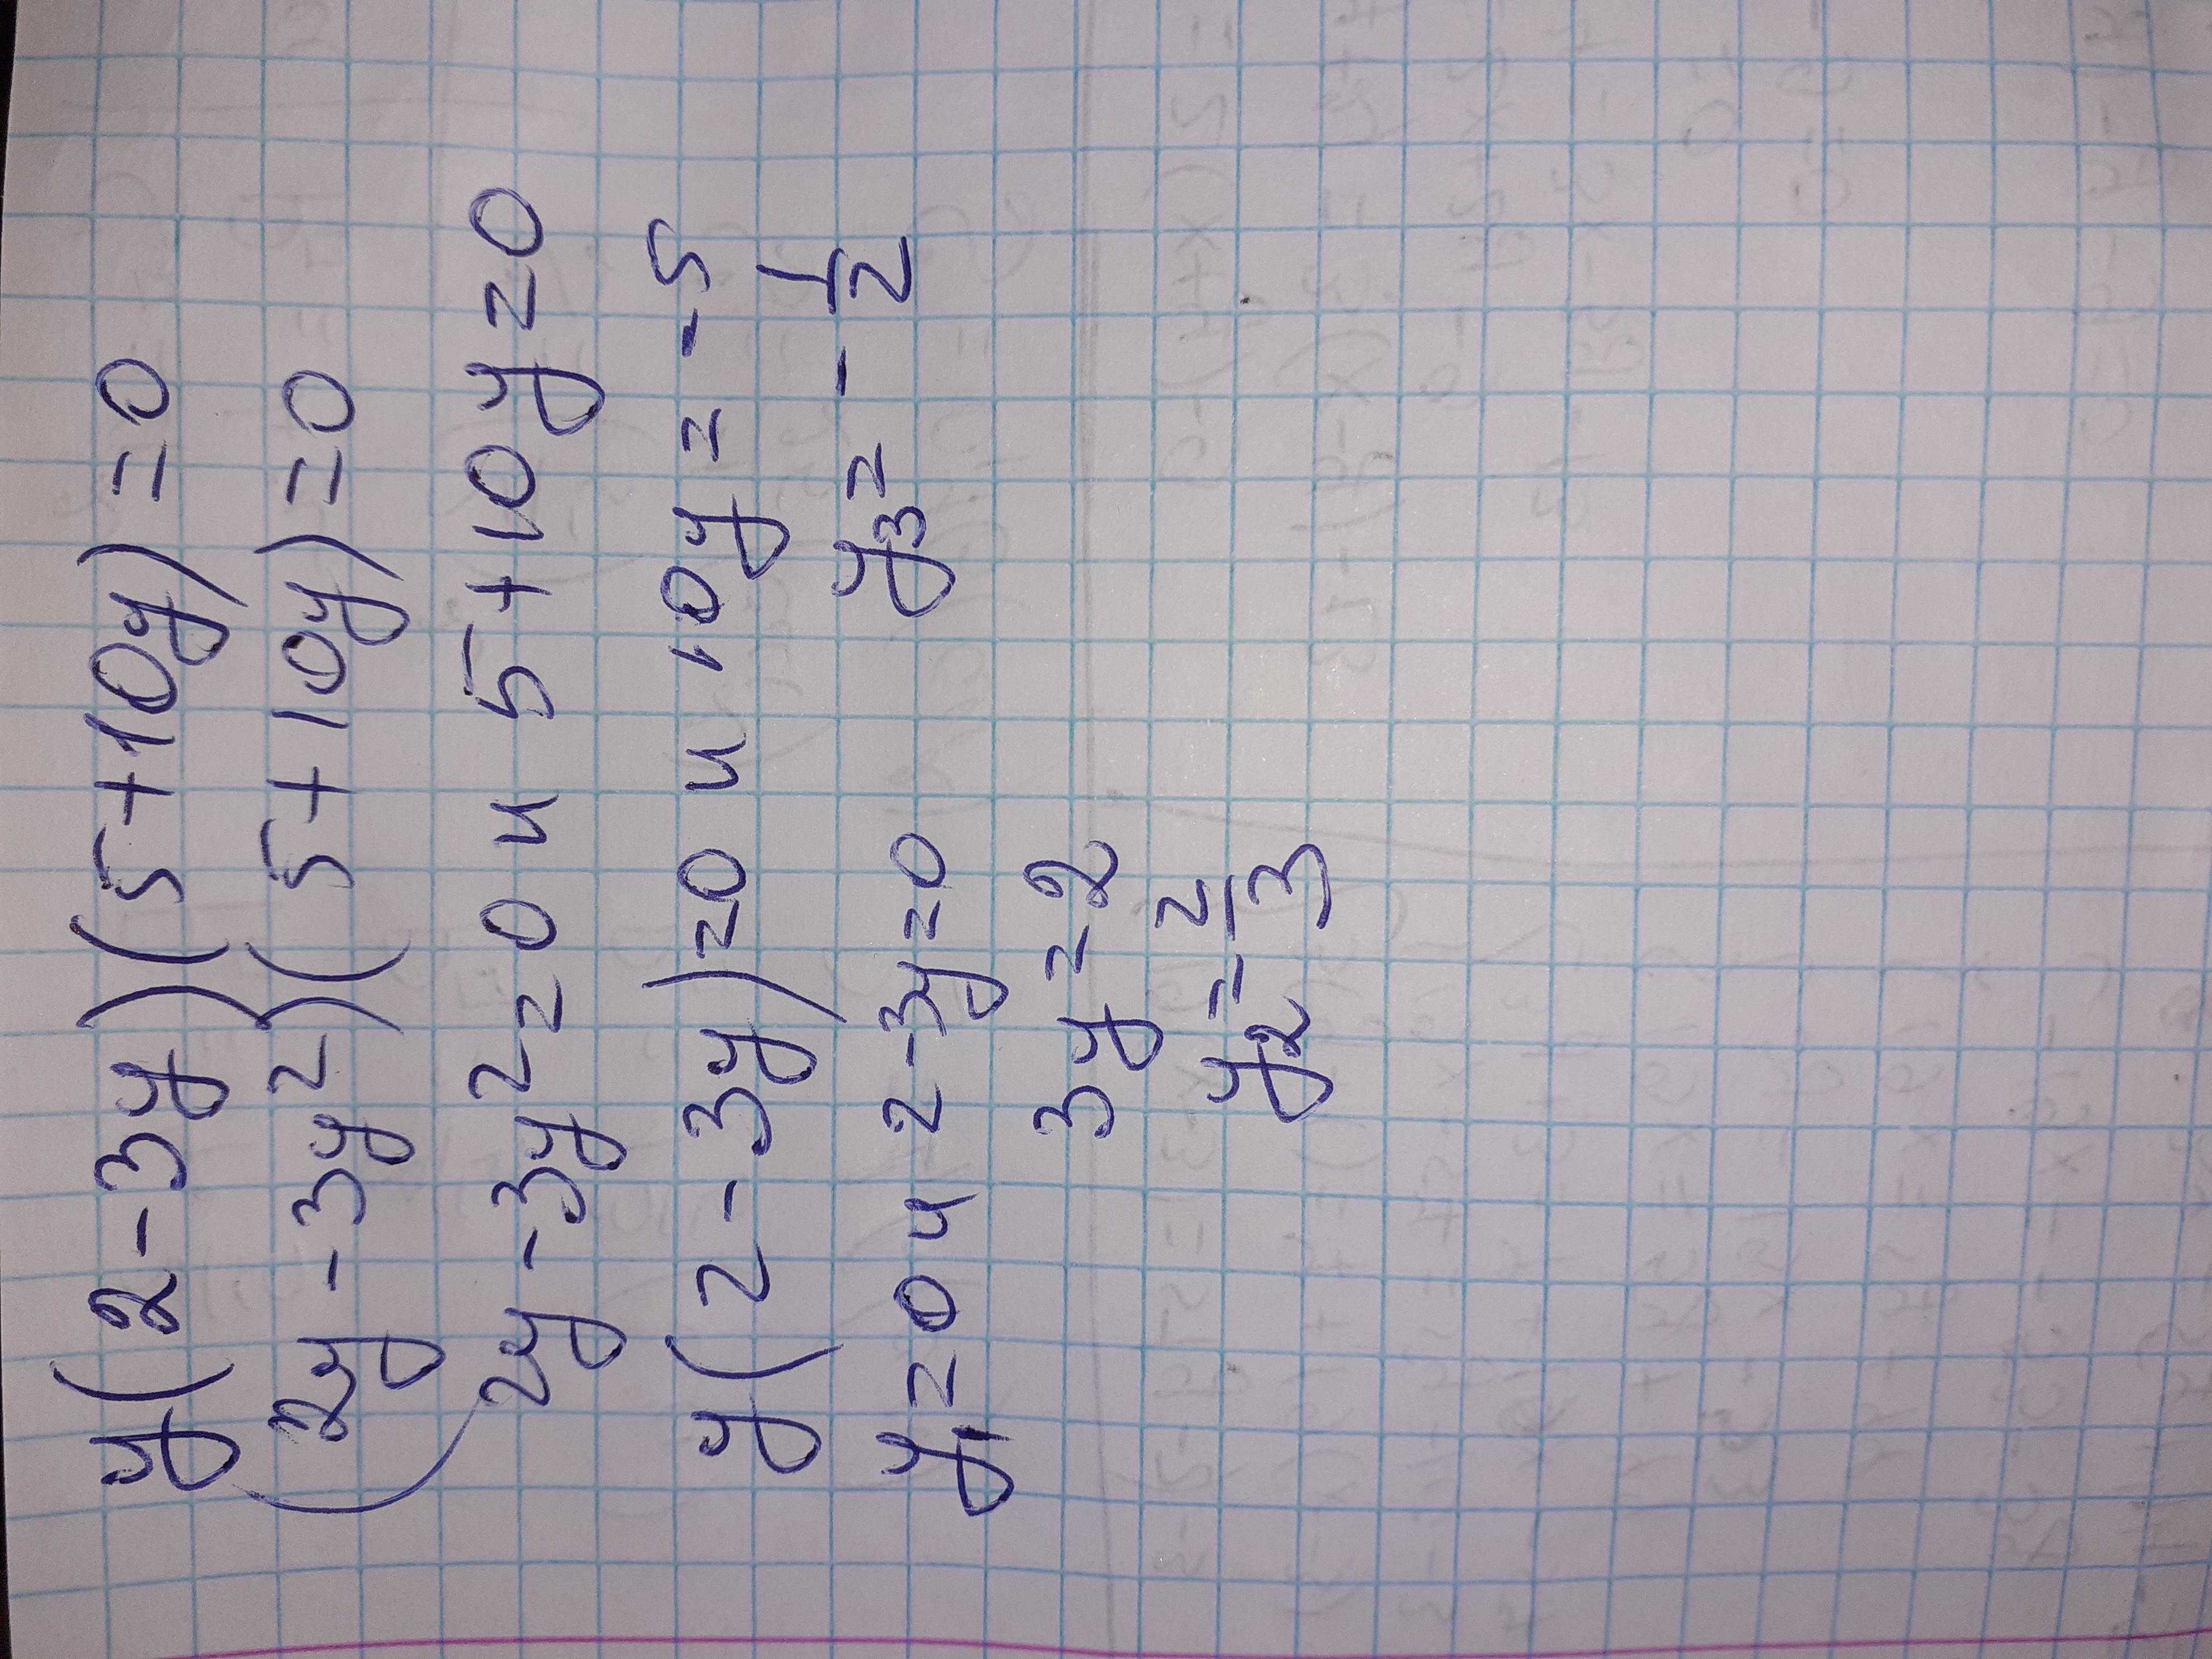 y(2-3y)(5+10y)=0
(2y-3y²)(5+10y)=0
2y-3y²=0 и 5+10y=0
y(2-3y)=0 и 10y=-5
y₁=0 и 2-3y=0 y₃=-1/2
3y=2
y₂=2/3